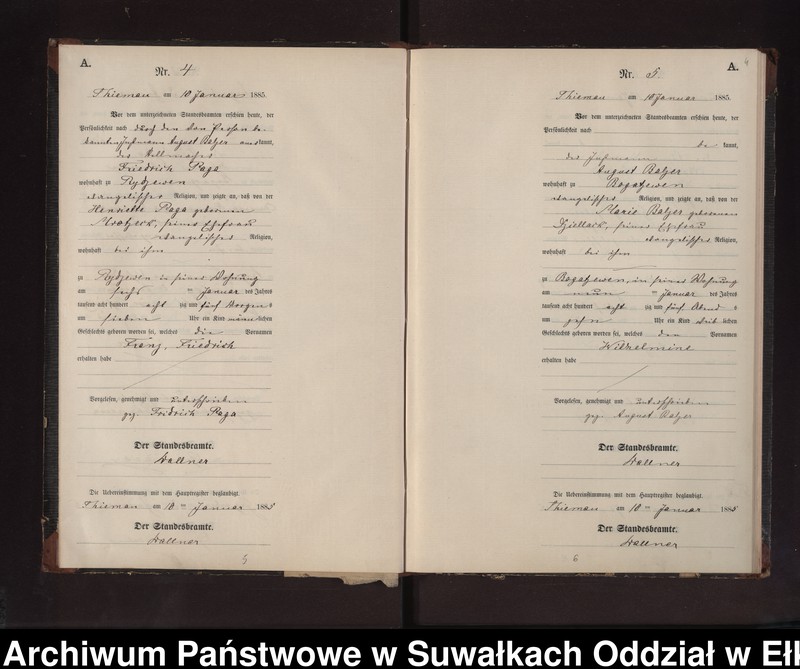 A.
Nr. 4
Thiemau am 10 Januar 1885.
Vor dem unterzeichneten Standesbeamten erschien heute, der
Persönlichkeit nach durch den von Person be-
kannten Instmann August Balzer anerkannt,
des
Friedrich Paga
wohnhaft zu Rydzewen
evangelischer Religion, und zeigte an, daß von der
Henriette Paga geborenen
seiner Ehefrau
evangelischer Religion,
wohnhaft bei ihm
zu Rydzewen in seiner Wohnung
am sechs ten Januar des Jahres
tausend acht hundert acht zig und fünf Morgens
um sieben Uhr ein Kind männlichen
Geschlechts geboren worden sei, welches die Vornamen
Franz, Friedrich
erhalten habe
Vorgelesen, genehmigt und unterschrieben
gez. Fridrich Paga
Der Standesbeamte.
Wallner
Die Uebereinstimmung mit dem Hauptregister beglaubigt.
Thiemau am 10 ten Januar 1885
Der Standesbeamte.
Wallner
5
A.
Nr. 5.
Thiemau am 10 Januar 1885.
Vor dem unterzeichneten Standesbeamten erschien heute, der
Persönlichkeit nach
be kannt,
der Instmann
August Balzer
wohnhaft zu Rogalzewen
evangelischer Religion, und zeigte an, daß von der
Marie Balzer geborenen
seiner Ehefrau
evangelischer Religion,
wohnhaft bei ihm
zu Rogalzewen, in seiner Wohnung
am neun ten Januar des Jahres
tausend acht hundert acht zig und fünf Abends
um zehn Uhr ein Kind weiblichen
Geschlechts geboren worden sei, welches den Vornamen
Wilhelmine
erhalten habe
Vorgelesen, genehmigt und unterschrieben
gez. August Balzer
Der Standesbeamte.
Wallner
Die Uebereinstimmung mit dem Hauptregister beglaubigt.
Thiemau am 10 ten Januar 1885
Der Standesbeamte.
Wallner
6
Archiwum Państwowe w Suwałkach Oddział w Eł